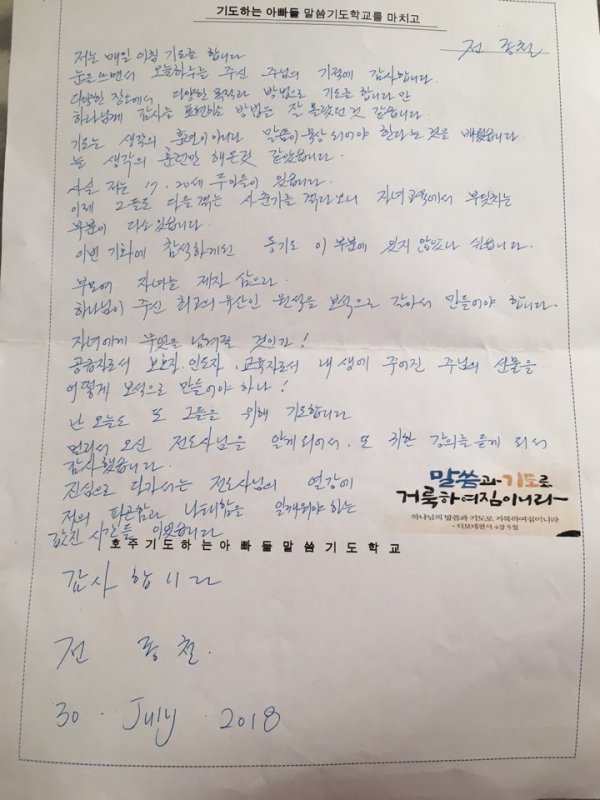 기도하는 아빠들 말씀기도학교를 마치고
전 종철
저는 매일 아침 기도를 합니다
눈을 뜨면서 오늘하루를 주신 주님의 기적에 감사합니다.
다양한 장소에서 다양한 목적과 방법으로 기도를 합니다만
하나님께 감사를 표현하는 방법은 잘 몰랐던 것 같습니다.
기도는 생각의 훈련이 아니라 말씀이 묵상 되어야 한다는 것을 배웠습니다
늘 생각의 훈련만 해온것 같았습니다.
사실 저는 17, 20세 두 아들이 있습니다.
이제 그들도 다들 겪는 사춘기를 겪다보니 자녀교육에서 부딪치는
부분이 다소 있습니다.
이번 기회에 참석하게된 동기도 이 부분에 있지 않았나 싶습니다.
부모여, 자녀를 제자 삼으라.
하나님이 주신 최고의 유산인 원석을 보석으로 깎아서 만들어야 합니다.
자녀에게 무엇을 남겨줄 것인가!
공급자로서 보호자, 인도자, 교육자로서 내 생에 주어진 주님의 선물을
어떻게 보석으로 만들어야 하나!
난 오늘도 또 그들을 위해 기도합니다
멀리서 오신 전도사님을 알게 되어서, 또 귀한 강의를 듣게 되서
감사했습니다.
진심으로 다가서는 전도사님의 열강에
저의 피곤함과 나태함을 일깨워야 하는
값진 시간들 이었습니다
말씀과 기도로
거룩하여짐이니라~
하나님의 말씀과 기도로 거룩하여짐이니라
- 디모데전서 4장 5절
호주기도하는아빠들말씀기도학교
감사 합니다
전 종철.
30 . July . 2018